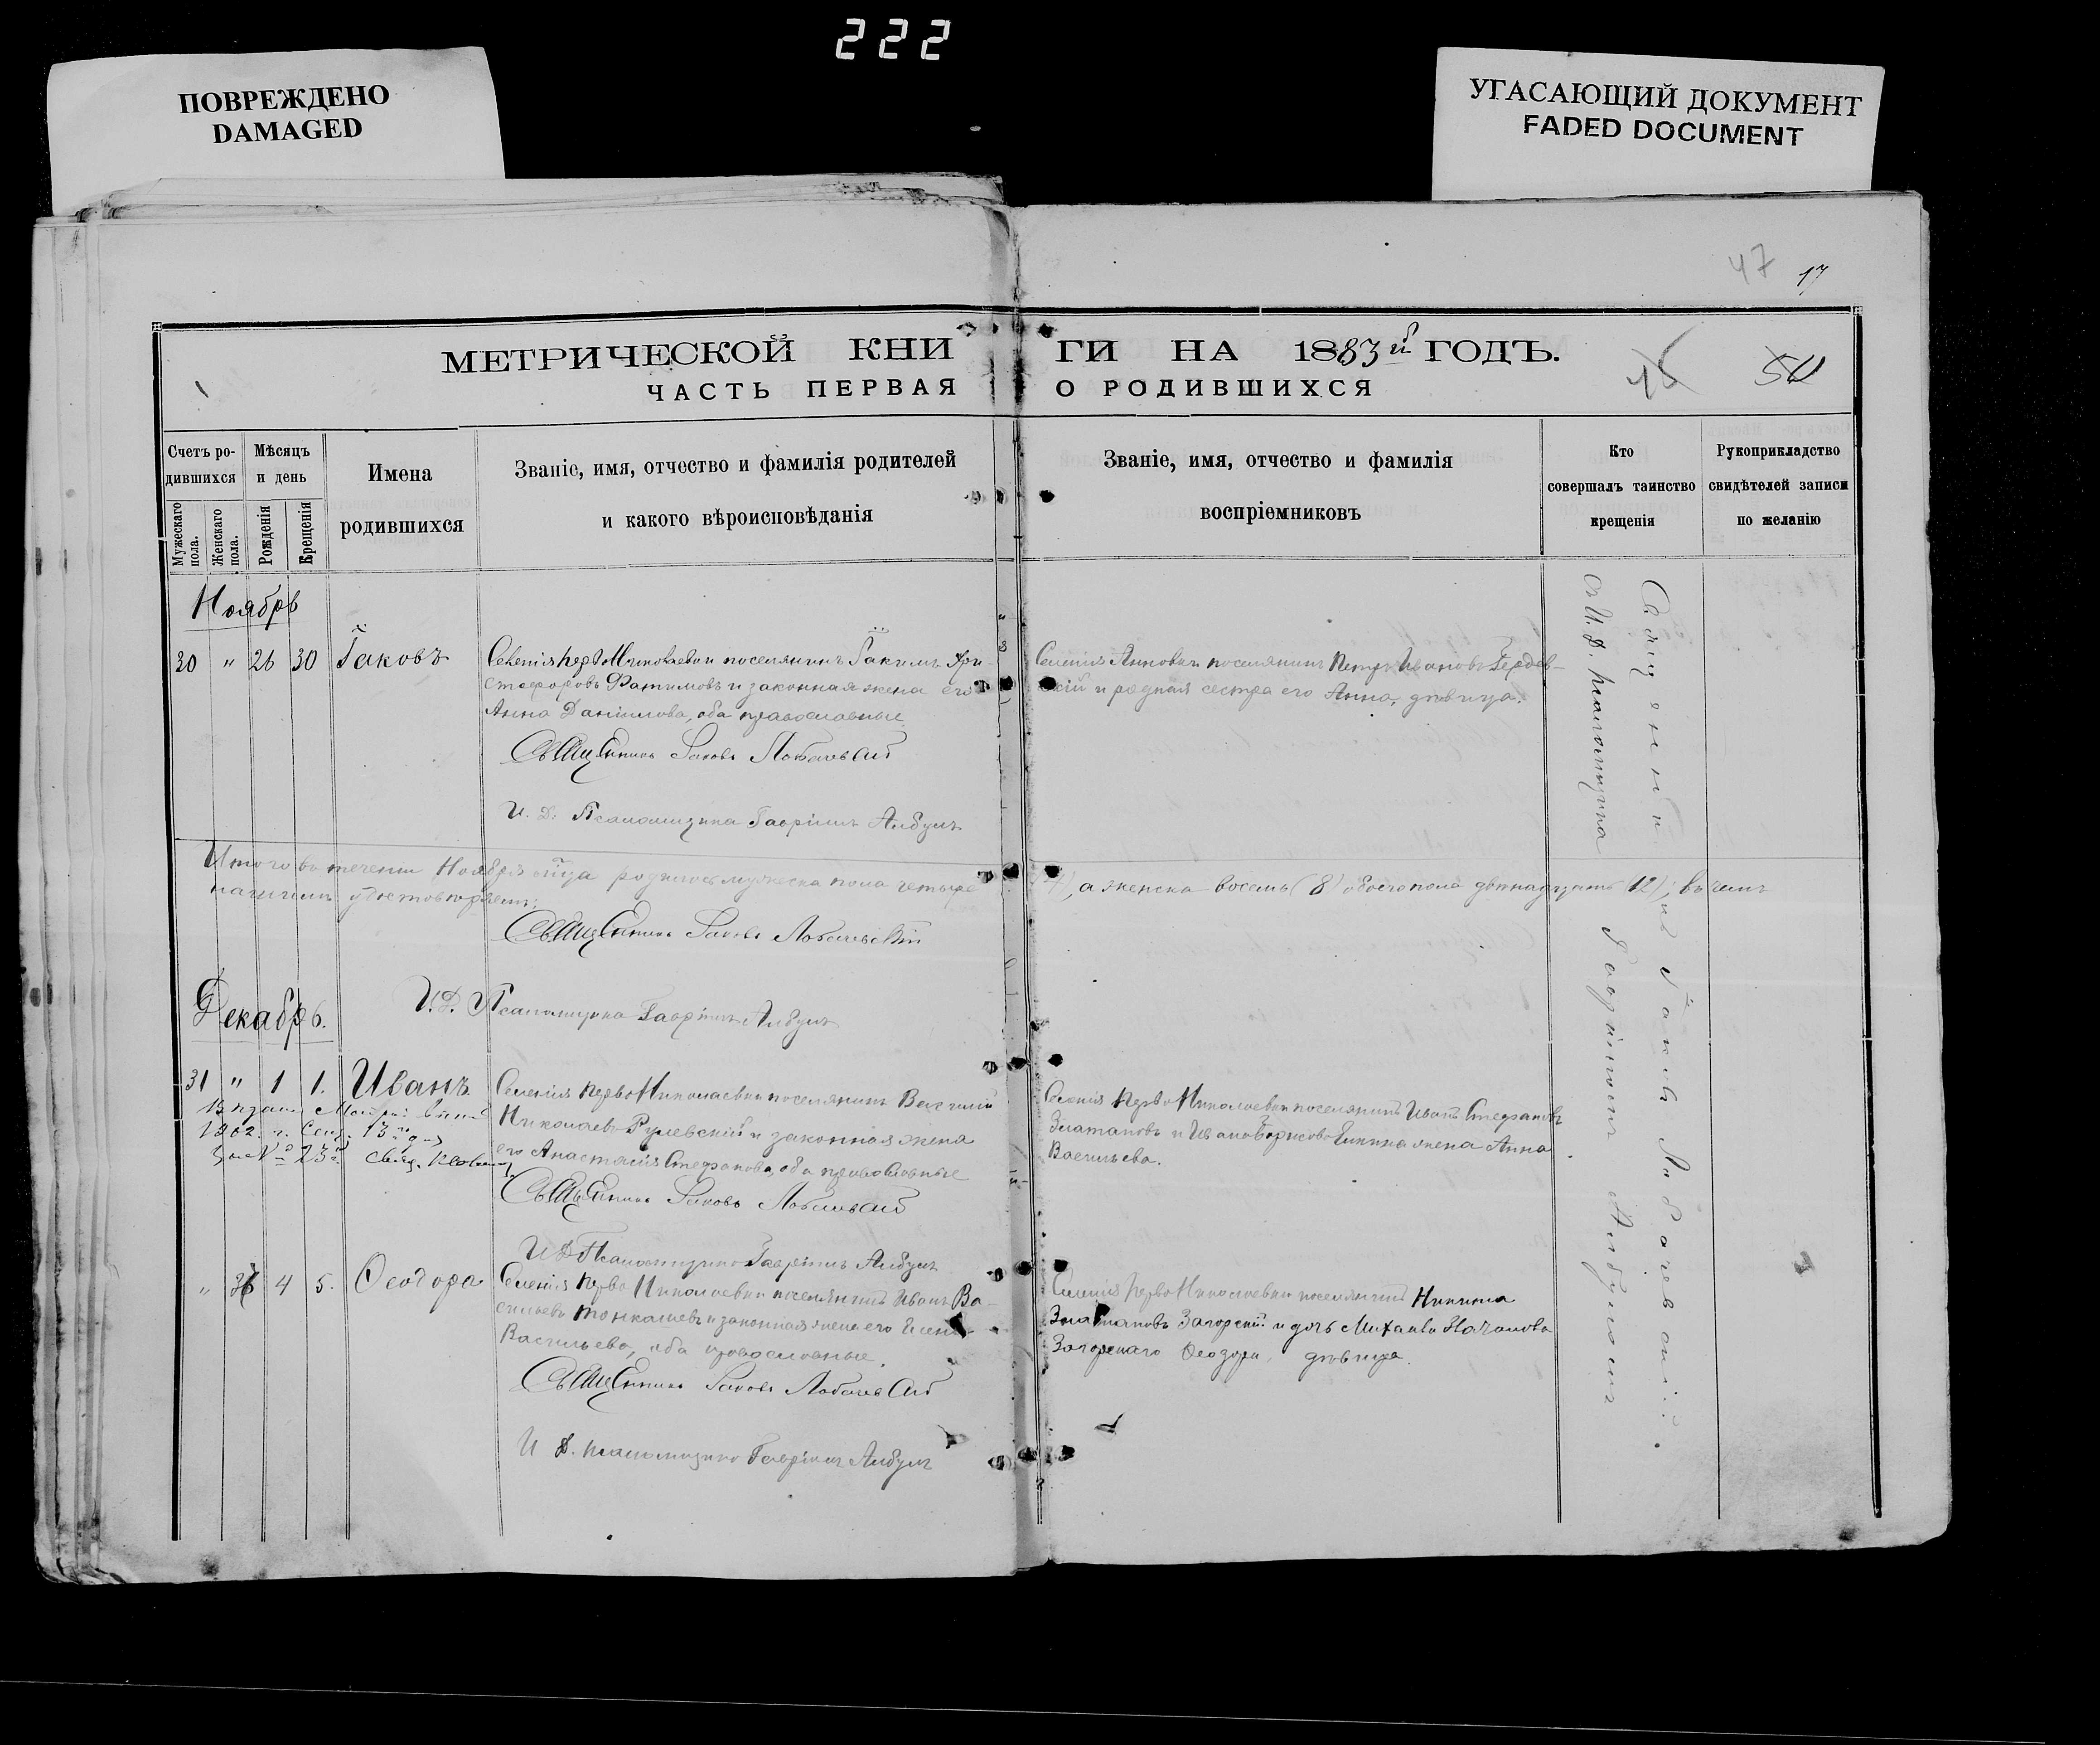 222
ПОВРЕЖДЕНО
DAMAGED
УГАСАЮЩИЙ ДОКУМЕНТ
FADED DOCUMENT
47 17
МЕТРИЧЕСКОЙ КНИ ГИ НА 1883й ГОДЪ.
ЧАСТЬ ПЕРВАЯ О РОДИВШИХСЯ
Счетъ ро-
дившихся
Мужескаго пола.
Женскаго пола.
Мѣсяцъ
и день
Рожденія
Крещенія
Имена
родившихся
Званіе, имя, отчество и фамилія родителей
и какого вѣроисповѣданія
Званіе, имя, отчество и фамилія
воспріемниковъ
Кто
совершалъ таинство
крещенія
Рукоприкладство
свидѣтелей записи
по желанію
Ноябрь
30 " 26 30 Іаковъ
поселянинъ Іакимъ Хри-
стофоровъ и законная жена его
Анна Даніилова, оба православные
Священникъ Іаковъ Лобачевскій
И. Д. Псаломщика Гавріилъ Албулъ
Селенія поселянинъ Петръ Ивановъ
скій и родная сестра его Анна, дѣвица.
Итого въ теченіи Ноября м͠ца родилось мужеска пола четыре (4), а женска восемь (8) обоего пола двѣнадцать (12); въ чемъ
Священникъ Іаковъ Лобачевскій
И. Д. Псаломщика Гавріилъ Албулъ
Декабрь.
31 " 1 1. Иванъ
Селенія Перво Николаевки поселянинъ Василій
Николаевъ Рулевскій и законная жена
его Анастасія Стефанова, оба православные
Священникъ Іаковъ Лобачевскій
И Д Псаломщика Гавріилъ Албулъ
Селенія Перво Николаевки поселянинъ Иванъ Стефановъ
Златановъ и жена Анна
Васильева.
1902. г. Сент. 13го дня
за № 23м. свящ.
" 4 5. Ѳеодора
Селенія Перво Николаевки поселянинъ Иванъ Ва-
сильевъ и законная жена его
Васильева, оба православные.
Священникъ Іаковъ Лобачевскій
И Д. Псаломщика Гавріилъ Албулъ
Селенія Перво Николаевки поселянинъ Никита
Загорскій и дочь Михаила
Загорскаго Ѳеодора, дѣвица.
Священникъ Іаковъ Лобачевскій.
съ И. Д. псаломщика Гавріиломъ Албуломъ